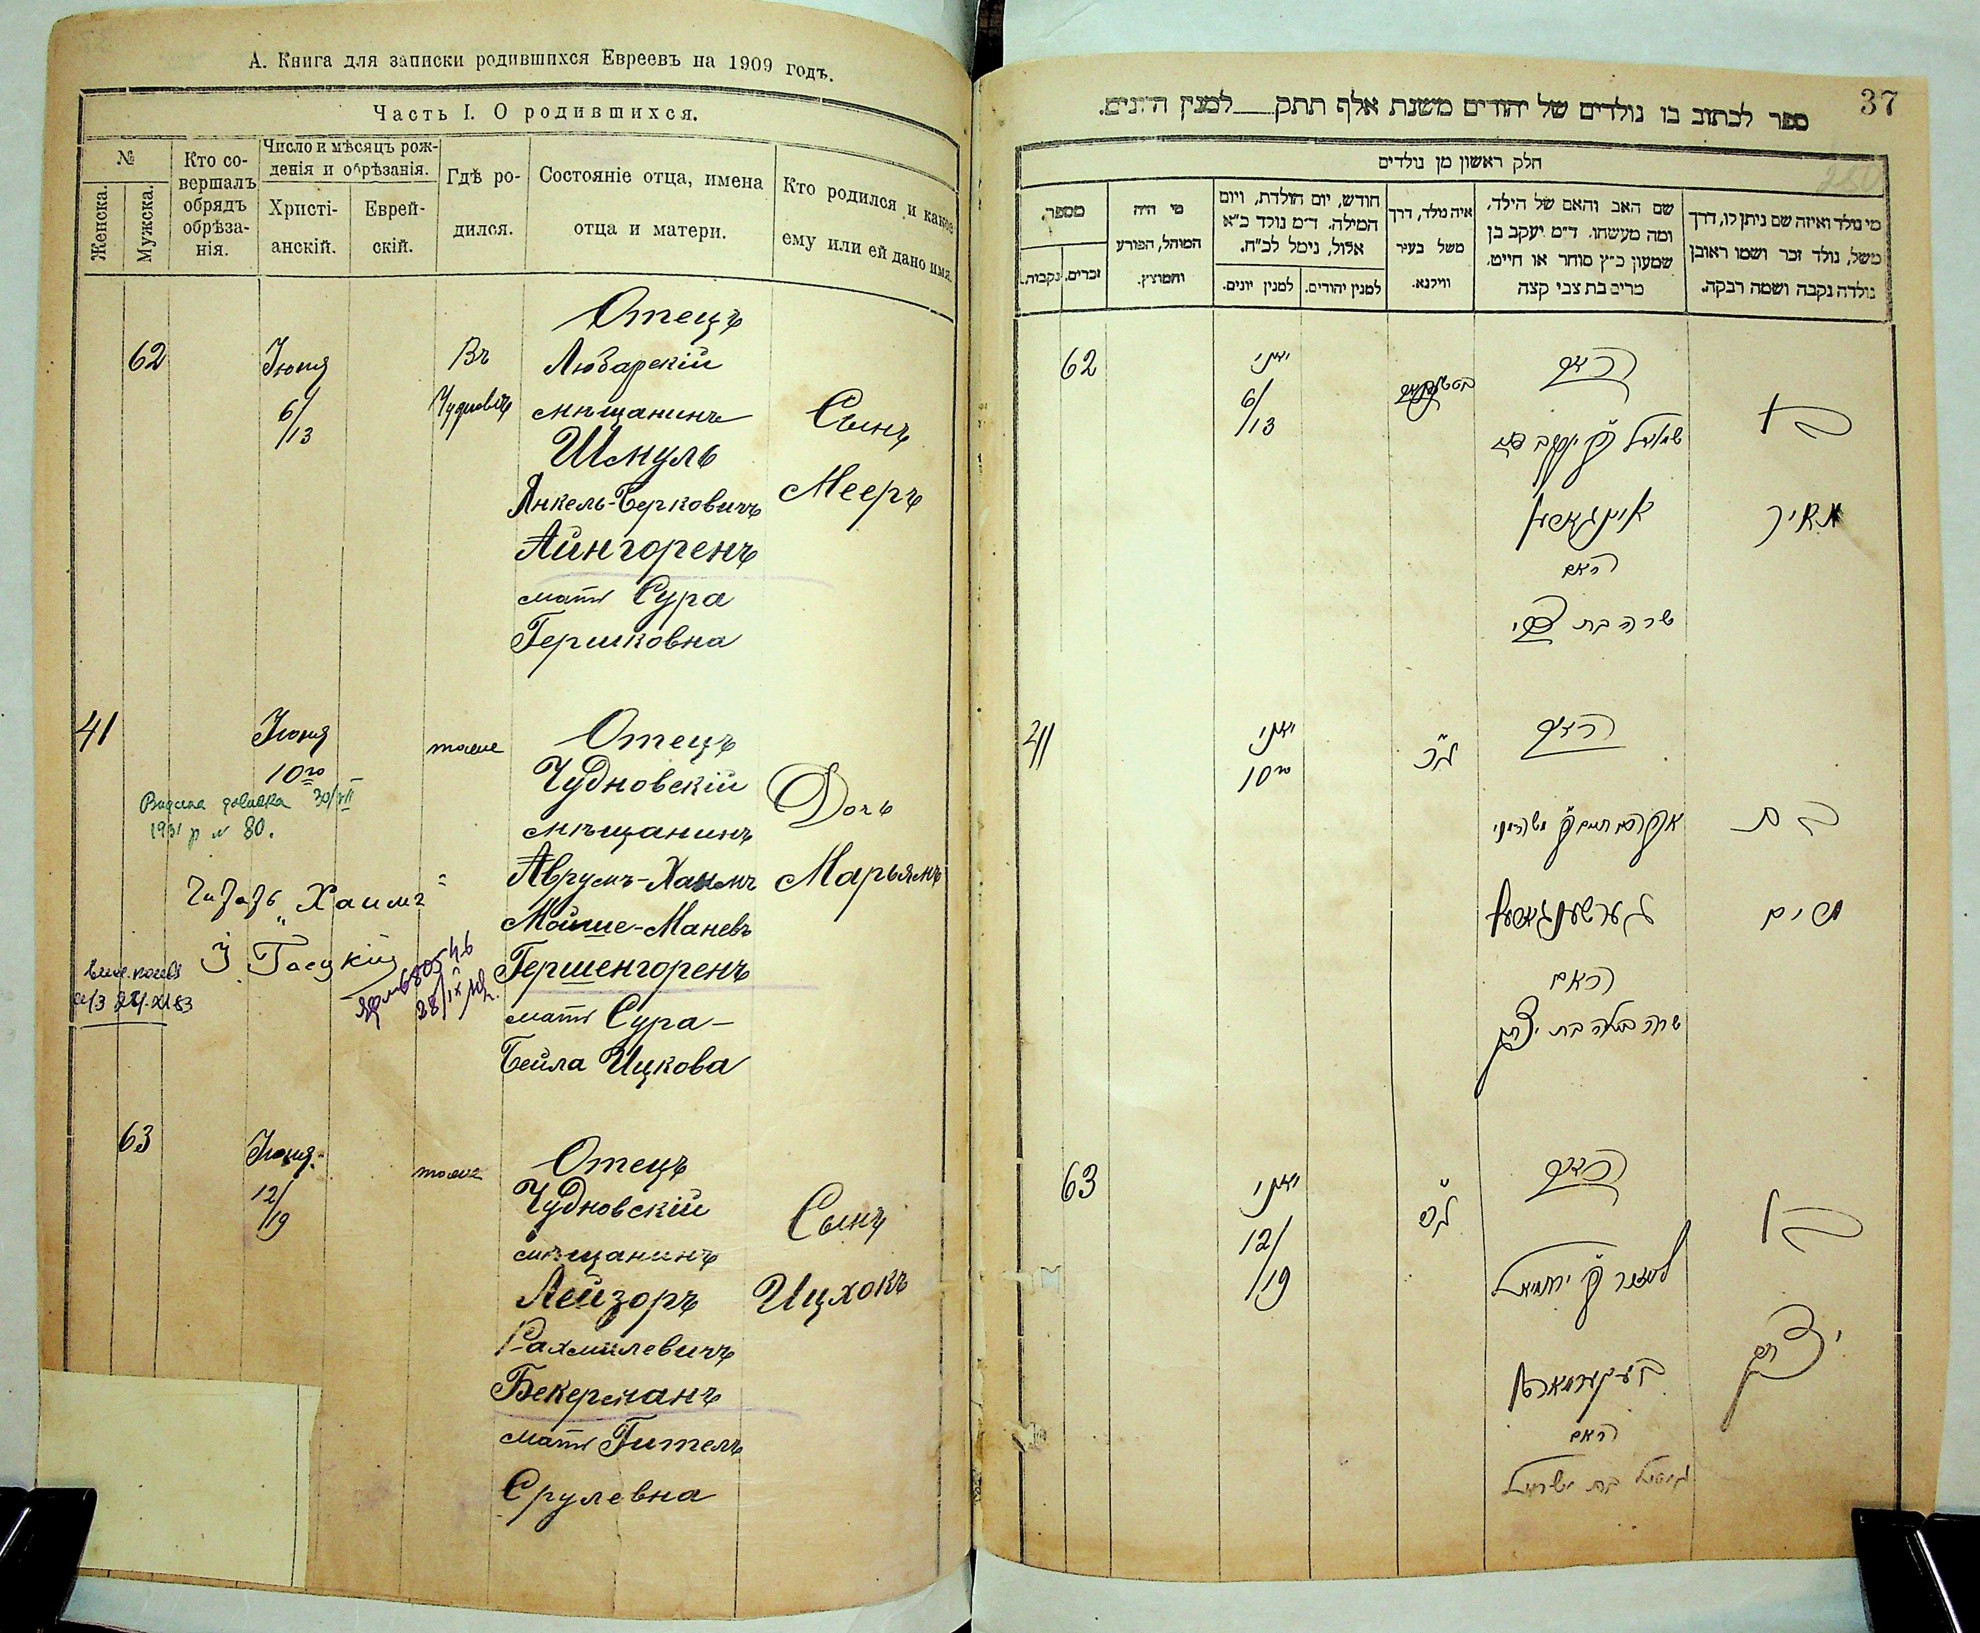 А. Книга для записки родившихся Евреевъ на 1909 годъ.
Часть I. О родившихся.
№
Женска.
Мужска.
Кто со-
вершалъ
обрядъ
обрѣза-
нія.
Число и мѣсяцъ рож-
денія и обрѣзанія.
Христі-
анскій.
Еврей-
скій.
Гдѣ ро-
дился.
Состояніе отца, имена
отца и матери.
Кто родился и какое
ему или ей дано имя.
62
Іюня
6/13
Въ
Чудновѣ
Отецъ
Любарскій
мѣщанинъ
Шмуль
Янкель-Берковичъ
Айнгоренъ
мать Сура
Гершковна
Сынъ
Мееръ
41
Іюня
10го
тоже
Отецъ
Чудновскій
мѣщанинъ
Аврумъ-Хаимъ
Мойше-Маневъ
Гершенгоренъ
мать Сура-
Бейла Ицкова
Дочь
Марьямъ
30/VII
1931 р № 80.
Хаимъ
63
Іюня
12/19
тоже
Отецъ
Чудновскій
мѣщанинъ
Лейзоръ
Рахмилевичъ
Бекерманъ
мать Гителъ
Срулевна
Сынъ
Ицхокъ
37
ספר לכתוב בו נולדים של יהודים משנת אלף תתק למנין היונים.
חלק ראשון מן נולדים
מי נולד ואיזה שם ניתן לו, דרך
משל, נולד זכר ושמו ראובן
נולדה נקבה ושמה רבקה.
שם האב והאם של הילד,
ומה מעשהו. ד״מ יעקב בן
שמעון כ״ץ סוחר או חייט,
מרים בת צבי קצה
איה נולד, דרך
משל בעיר
ווילנא.
חודש, יום הולדת, ויום
המילה. ד״מ נולד כ״א
אלול, נימל לכ״ח.
למנין יהודים.
למנין יונים.
מי היה
המוהל, הפורע
והמוצץ.
מספר.
זכרים.
נקבות.
62
יוני
6/13
האב
שמואל ב״ר יעקב בער
אינגארען
האם
שרה בת צבי
בן
מאיר
41
יוני
10го
האב
גערשענגארען
האם
שרה ביילא בת יצחק
בת
מרים
63
יוני
12/19
האב
לעזער ב״ר ירחמיאל
בעקערמאן
האם
גיטל בת ישראל
בן
יצחק